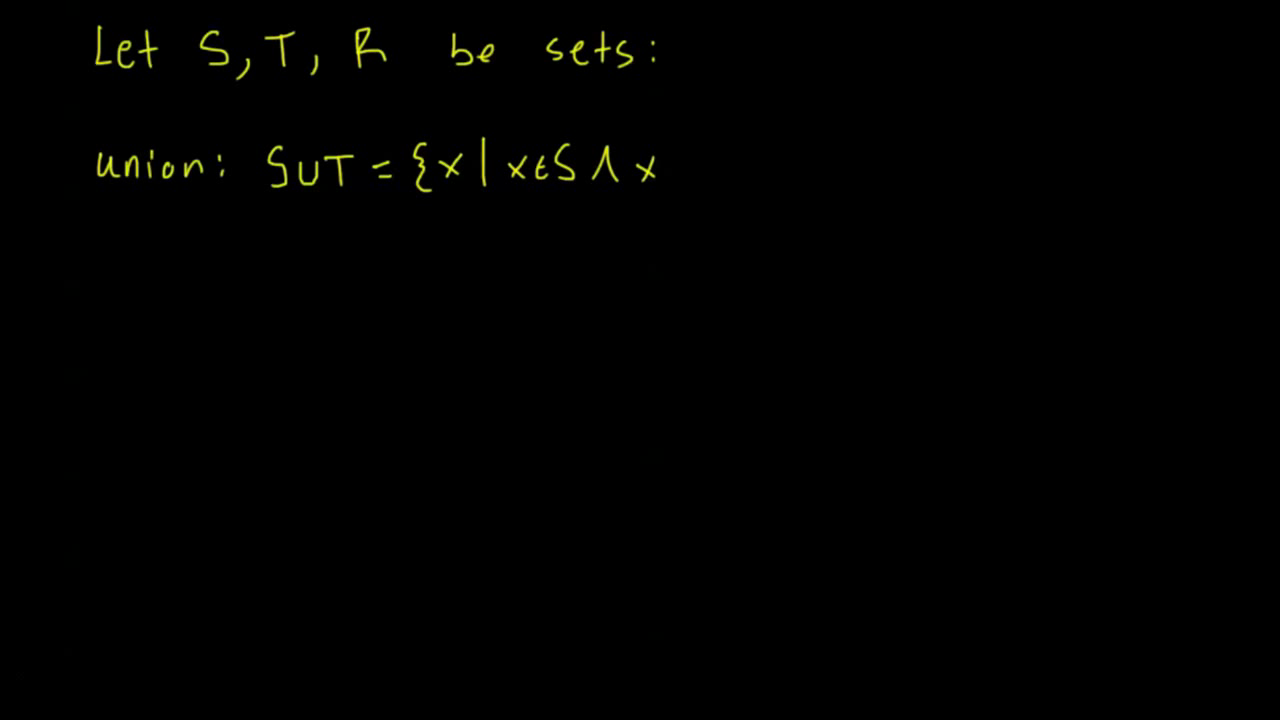 Let S, T, R be sets:
union: S∪T = {x | x∈S ∧ x